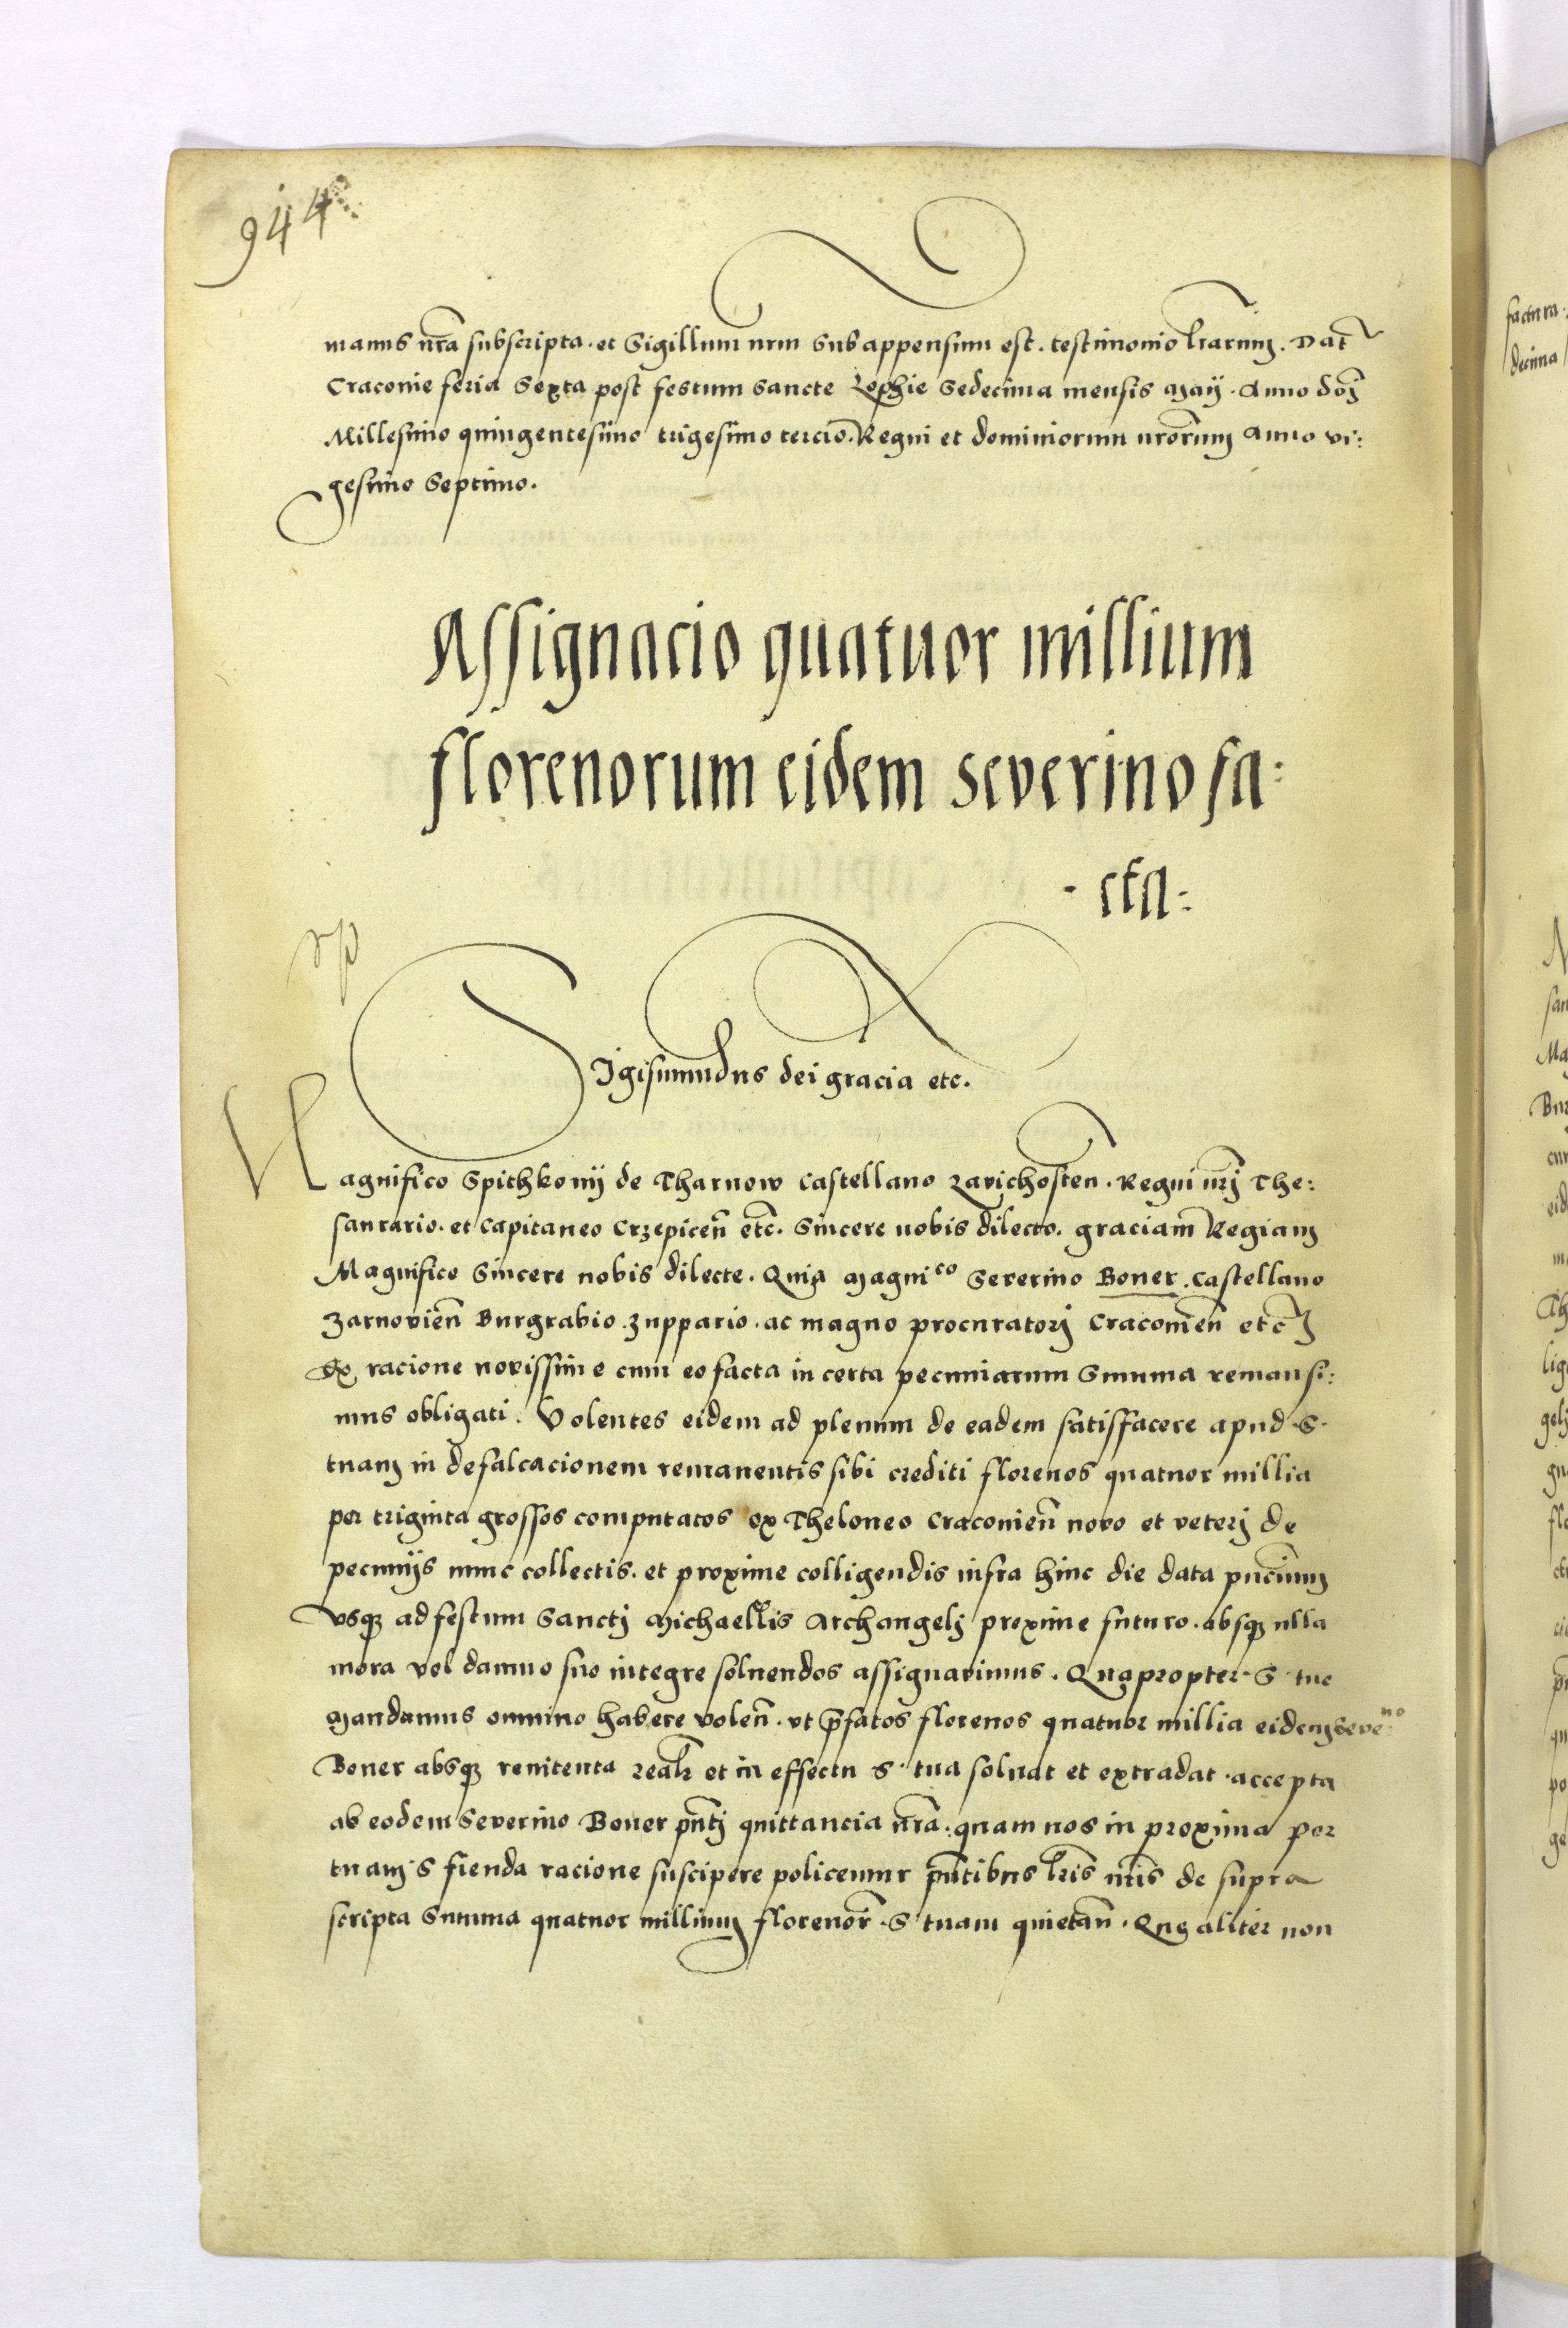 944
manus nr̃a subscripta. et Sigillum nrm̃ Sub appensum est. testimonio l̃rarum. Dat̃
Craconie feria Sexta post festum Sancte Zophie Sedecima mensis Maij. Anno dõj
Millesimo quingentesimo trigesimo tercio. Regni et dominiorum nrõrum Anno vi:
gesimo Septimo.
Assignacio quatuor millium
florenorum eidem Severino fa:
cta:
Sigismundus dei gracia etc.
Magnifico Spithkonij de Tharnow Castellano Zavichosten̄. Regni nr̃j The:
saurario. et Capitaneo Crzepicen̄ etc̃. Sincere nobis dilecto. graciam Regiam
Magnifice Sincere nobis dilecte. Quia Magnico Severino Boner. Castellano
Zarnovien̄ Burgrabio. zuppario. ac magno procuratorj Craconien̄ etc̃
Ex racione novissime cum eo facta in certa pecuniarum Summa remansi:
mus obligati. Volentes eidem ad plenum de eadem satisfacere apud S.
tuam in defalcacionem remanentis sibi crediti florenos quatuor millia
per triginta grossos computatos ex Theloneo Craconien̄ novo et veterj de
pecunijs nunc collectis. et proxime colligendis infra hinc die data pn̄cium
vsq; ad festum Sanctj Michaellis Archangelj proxime futuro. absq; ulla
mora vel damno suo integre soluendos assignavimus. Quapropter S. tue
Mandamus omnino habere volen̄. vt p̄fatos florenos quatuor millia eidem Seveno
Boner absq; renitenta realr̃ et in effectu S. tua soluat et extradat. accepta
ab eodem Severino Boner pn̄tj quittancia nr̃a. quam nos in proxima per
tuam S fienda racione suscipere policemur pn̄tibus l̃ris nr̃is de supra
scripta Summa quatuor millium florenor̃. S tuam quietan̄. Que aliter non